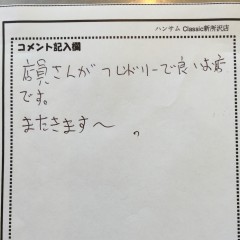 ハンサム Classic新所沢店
コメント記入欄
店員さんがフレンドリーで良いお店
です。
またきます〜